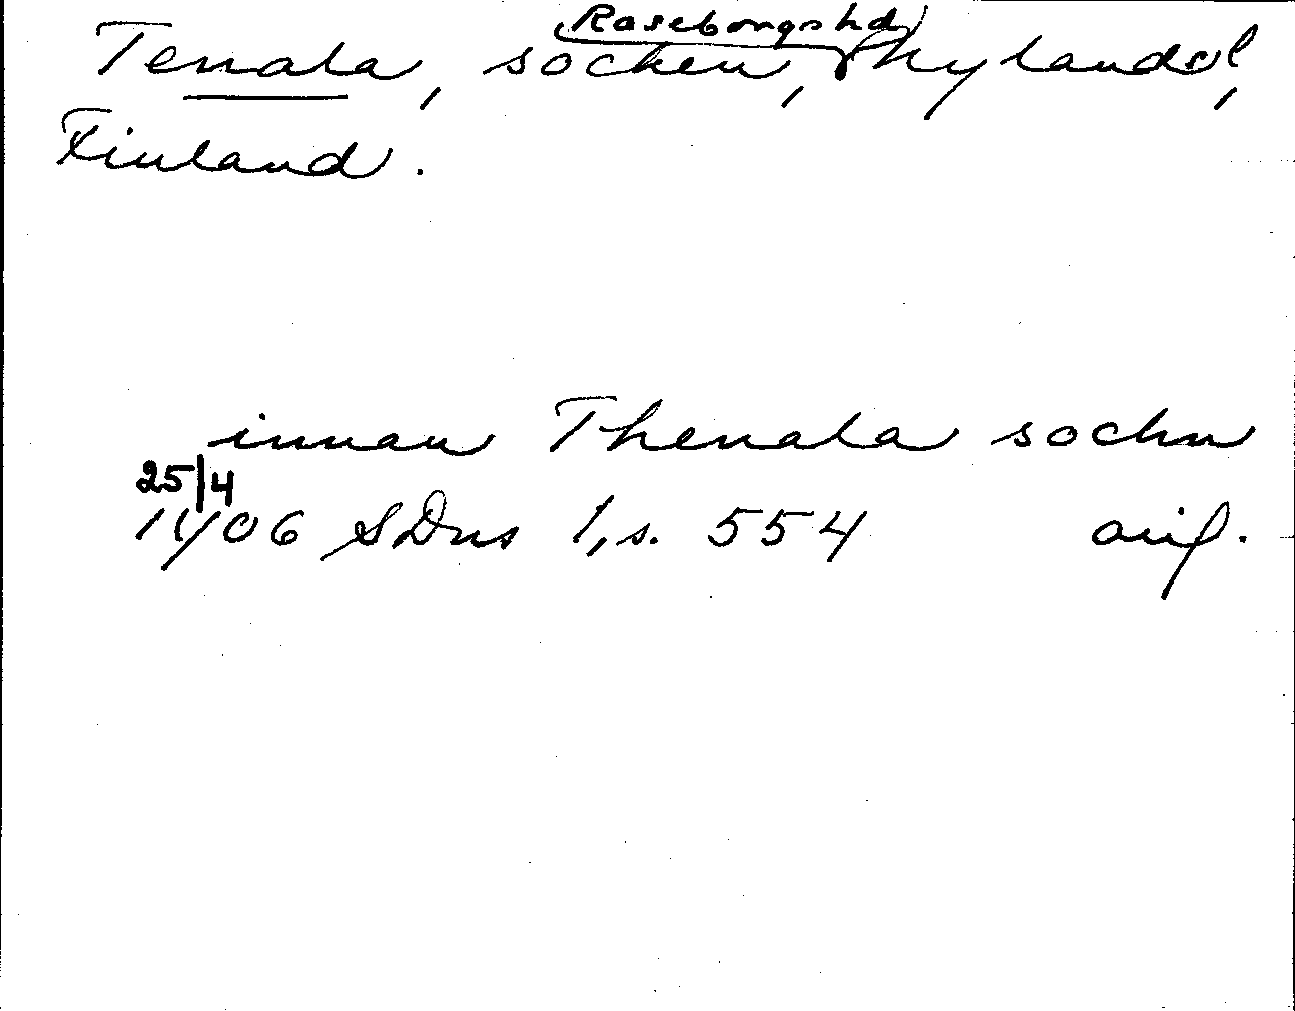 Raseborgs hd
Tenala, socken, Nylands l,
Finland.
innan Thenala sochn
25/4
1406 SDns 1, s. 554 avif.